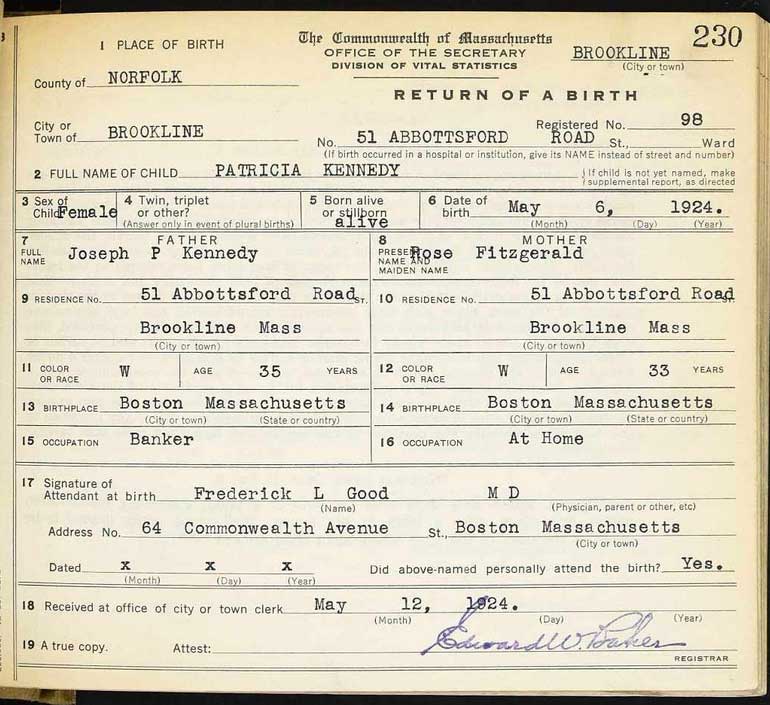 230
1 PLACE OF BIRTH
The Commonwealth of Massachusetts
OFFICE OF THE SECRETARY
DIVISION OF VITAL STATISTICS
BROOKLINE
(City or town)
County of NORFOLK
RETURN OF A BIRTH
Registered No. 98
City or Town of BROOKLINE
No. 51 ABBOTTSFORD ROAD St., Ward
(If birth occurred in a hospital or institution, give its NAME instead of street and number)
2 FULL NAME OF CHILD PATRICIA KENNEDY
{ If child is not yet named, make
supplemental report, as directed
3 Sex of Child Female
4 Twin, triplet or other?
(Answer only in event of plural births)
5 Born alive or stillborn alive
6 Date of birth May 6, 1924.
(Month) (Day) (Year)
7 FATHER
FULL NAME Joseph P Kennedy
8 MOTHER
PRESENT NAME AND MAIDEN NAME Rose Fitzgerald
9 RESIDENCE No. 51 Abbottsford Road St.
10 RESIDENCE No. 51 Abbottsford Road St.
Brookline Mass
Brookline Mass
(City or town)
(City or town)
11 COLOR OR RACE W AGE 35 YEARS
12 COLOR OR RACE W AGE 33 YEARS
13 BIRTHPLACE Boston Massachusetts
(City or town) (State or country)
14 BIRTHPLACE Boston Massachusetts
(City or town) (State or country)
15 OCCUPATION Banker
16 OCCUPATION At Home
17 Signature of Attendant at birth Frederick L Good M D
(Name) (Physician, parent or other, etc)
Address No. 64 Commonwealth Avenue St., Boston Massachusetts
(City or town)
Dated x x x Did above-named personally attend the birth? Yes.
(Month) (Day) (Year)
18 Received at office of city or town clerk May 12, 1924.
(Month) (Day) (Year)
19 A true copy. Attest: Edward W. Baker
REGISTRAR